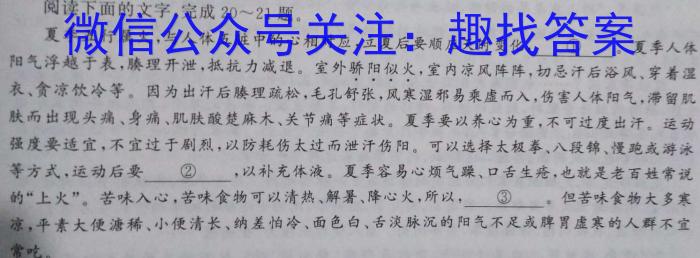 阅读下面的文字,完成20~21题。
微信公众号关注:趣找答案
夏季人体
阳气浮越于表,腠理开泄,抵抗力减退。室外骄阳似火,室内凉风阵阵,切忌汗后浴风、穿着湿
衣、贪凉饮冷等。因为出汗后腠理疏松,毛孔舒张,风寒湿邪易乘虚而入,伤害人体阳气,滞留肌
肤而出现头痛、身痛、肌肤酸楚麻木、关节痛等症状。夏季要以养心为重,不可过度出汗。运动
强度要适宜,不宜过于剧烈,以防耗伤太过而泄汗伤阳。可以选择太极拳、八段锦、慢跑或游泳
等方式,运动后要 ② ,以补充体液。夏季容易心烦气躁、口舌生疮,也就是老百姓常说
的“上火”。苦味入心,苦味食物可以清热、解暑、降心火,所以, ③ 。但苦味食物大多寒
凉,平素大便溏稀、小便清长、纳差怕冷、面色白、舌淡脉沉的阳气不足或脾胃虚寒的人群不宜
常吃。